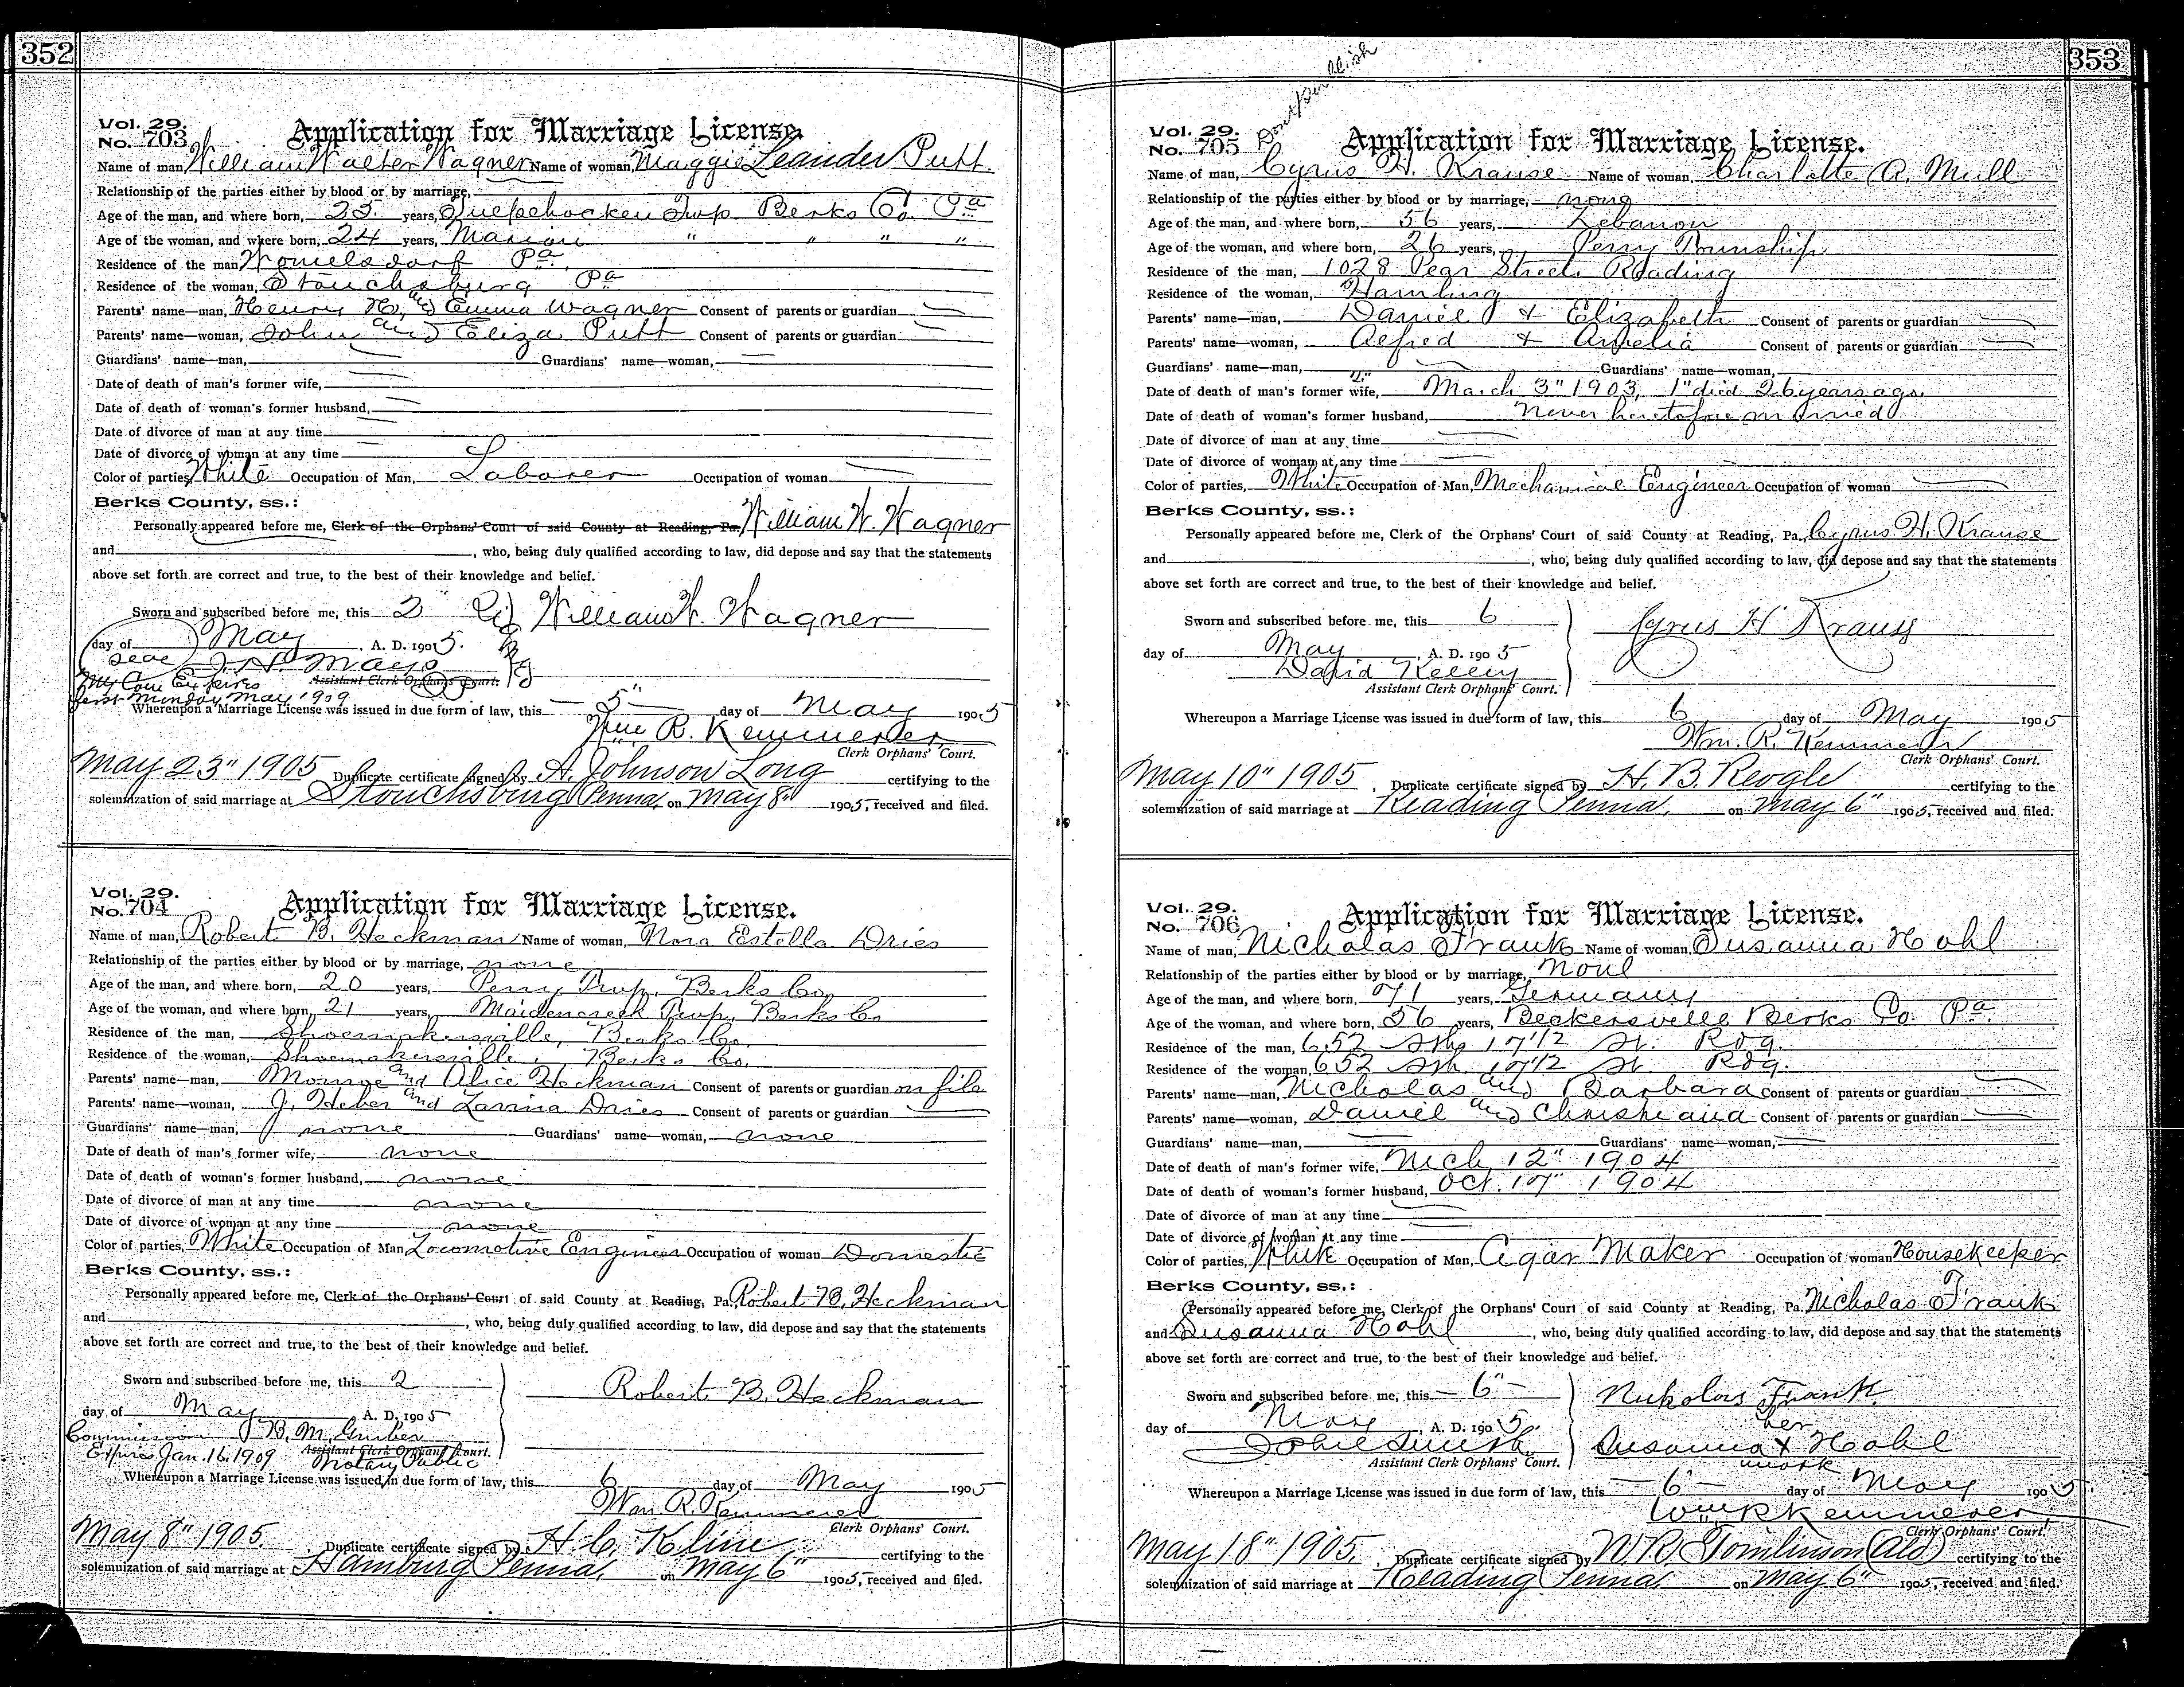 352
Vol. 29.
No. 703
Application for Marriage License.
Name of man, William Walter Wagner Name of woman, Maggie Leander Putt
Relationship of the parties either by blood or by marriage,
Age of the man, and where born, 25 years, Tulpehocken Twp Berks Co. Pa
Age of the woman, and where born, 24 years, Marion " " " "
Residence of the man Womelsdorf Pa.
Residence of the woman, Stouchsburg Pa
Parents' name—man, Henry H. and Emma Wagner Consent of parents or guardian
Parents' name—woman, John and Eliza Putt Consent of parents or guardian
Guardians' name—man, Guardians' name—woman,
Date of death of man's former wife,
Date of death of woman's former husband,
Date of divorce of man at any time
Date of divorce of woman at any time
Color of parties, White Occupation of Man, Laborer Occupation of woman
Berks County, ss.:
Personally appeared before me, Clerk of the Orphans' Court of said County at Reading, Pa. William W. Wagner
and , who, being duly qualified according to law, did depose and say that the statements
above set forth are correct and true, to the best of their knowledge and belief.
Sworn and subscribed before me, this 2" William W. Wagner
day of May A. D. 1905.
Seal J. H. Mays
Assistant Clerk Orphans' Court.
My Com Expires
first Monday May 1909
Whereupon a Marriage License was issued in due form of law, this 5" day of May 1905
Wm R. Kemmerer
Clerk Orphans' Court.
May 23" 1905 Duplicate certificate signed by A. Johnson Long certifying to the
solemnization of said marriage at Stouchsburg Penna, on May 8" 1905, received and filed.
Vol. 29.
No. 704
Application for Marriage License.
Name of man, Robert B. Heckman Name of woman, Nora Estella Dries
Relationship of the parties either by blood or by marriage, none
Age of the man, and where born, 20 years, Perry Twp. Berks Co.
Age of the woman, and where born, 21 years, Maidencreek Twp. Berks Co
Residence of the man, Shoemakersville, Berks Co.
Residence of the woman, Shoemakersville, Berks Co.
Parents' name—man, Monroe and Alice Heckman Consent of parents or guardian on file
Parents' name—woman, J. Heber and Dries Consent of parents or guardian
Guardians' name—man, none Guardians' name—woman, none
Date of death of man's former wife, none
Date of death of woman's former husband, none
Date of divorce of man at any time none
Date of divorce of woman at any time none
Color of parties, White Occupation of Man Locomotive Engineer Occupation of woman Domestic
Berks County, ss.:
Personally appeared before me, Clerk of the Orphans' Court of said County at Reading, Pa. Robert B. Heckman
and , who, being duly qualified according to law, did depose and say that the statements
above set forth are correct and true, to the best of their knowledge and belief.
Sworn and subscribed before me, this 2 Robert B. Heckman
day of May A. D. 1905
Commission B. M. Gruber
Expires Jan. 16. 1909 Assistant Clerk Orphans' Court.
Notary Public
Whereupon a Marriage License was issued in due form of law, this 6 day of May 1905
Wm. R. Kemmerer
Clerk Orphans' Court.
May 8" 1905. Duplicate certificate signed by H. C. Kline certifying to the
solemnization of said marriage at Hamburg Penna, on May 6" 1905, received and filed.
353
Vol. 29.
No. 705
Application for Marriage License.
Name of man, Cyrus H. Krause Name of woman, Charlotte A. Mull
Relationship of the parties either by blood or by marriage, none
Age of the man, and where born, 56 years, Lebanon
Age of the woman, and where born, 26 years, Perry Township
Residence of the man, 1028 Pear Street Reading
Residence of the woman, Hamburg
Parents' name—man, Daniel & Elizabeth Consent of parents or guardian
Parents' name—woman, Alfred & Amelia Consent of parents or guardian
Guardians' name—man, Guardians' name—woman,
Date of death of man's former wife, "2" March 3" 1903, 1" died 26 years ago.
Date of death of woman's former husband, Never heretofore married
Date of divorce of man at any time
Date of divorce of woman at any time
Color of parties, White Occupation of Man, Mechanical Engineer Occupation of woman
Berks County, ss.:
Personally appeared before me, Clerk of the Orphans' Court of said County at Reading, Pa., Cyrus H. Krause
and , who, being duly qualified according to law, did depose and say that the statements
above set forth are correct and true, to the best of their knowledge and belief.
Sworn and subscribed before me, this 6 Cyrus H Krauss
day of May A. D. 1905
David Kelley
Assistant Clerk Orphans' Court.
Whereupon a Marriage License was issued in due form of law, this 6 day of May 1905
Wm. R. Kemmerer
Clerk Orphans' Court.
May 10" 1905. Duplicate certificate signed by H. B. Reogle certifying to the
solemnization of said marriage at Reading Penna, on May 6" 1905, received and filed.
Vol. 29.
No. 706
Application for Marriage License.
Name of man, Nicholas Frank Name of woman, Susanna Hohl
Relationship of the parties either by blood or by marriage, None
Age of the man, and where born, 71 years, Germany
Age of the woman, and where born, 56 years, Beckersville Berks Co. Pa.
Residence of the man, 652 Sth 17 1/2 St. Rdg.
Residence of the woman, 652 Sth 17 1/2 St Rdg.
Parents' name—man, Nicholas and Barbara Consent of parents or guardian
Parents' name—woman, Daniel and Christiana Consent of parents or guardian
Guardians' name—man, Guardians' name—woman,
Date of death of man's former wife, Mch 12" 1904
Date of death of woman's former husband, Oct. 17" 1904
Date of divorce of man at any time
Date of divorce of woman at any time
Color of parties, White Occupation of Man, Cigar Maker Occupation of woman Housekeeper
Berks County, ss.:
Personally appeared before me, Clerk of the Orphans' Court of said County at Reading, Pa. Nicholas Frank
and Susanna Hohl , who, being duly qualified according to law, did depose and say that the statements
above set forth are correct and true, to the best of their knowledge and belief.
Sworn and subscribed before me, this 6" Nickolas Frank
day of May A. D. 1905. her
Susanna x Hohl
Assistant Clerk Orphans' Court. mark
Whereupon a Marriage License was issued in due form of law, this 6" day of May 1905
Wm R Kemmerer
Clerk Orphans' Court.
May 18" 1905. Duplicate certificate signed by W. R. Tomlinson (Ald) certifying to the
solemnization of said marriage at Reading Penna, on May 6" 1905, received and filed.